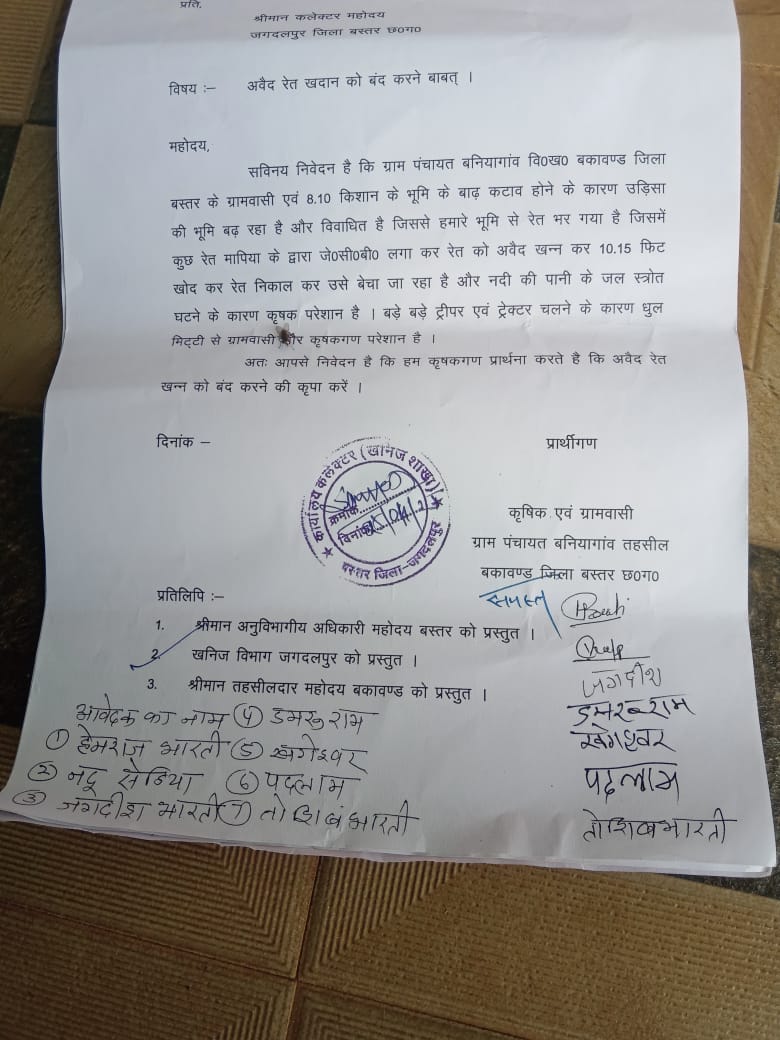 प्रति,
श्रीमान कलेक्टर महोदय
जगदलपुर जिला बस्तर छ0ग0
विषय :– अवैद रेत खदान को बंद करने बाबत् ।
महोदय,
सविनय निवेदन है कि ग्राम पंचायत बनियागांव वि0ख0 बकावण्ड जिला
बस्तर के ग्रामवासी एवं 8.10 किशान के भूमि के बाढ़ कटाव होने के कारण उड़िसा
की भूमि बढ़ रहा है और विवाधित है जिससे हमारे भूमि से रेत भर गया है जिसमें
कुछ रेत मापिया के द्वारा जे0सी0बी0 लगा कर रेत को अवैद खन्न कर 10.15 फिट
खोद कर रेत निकाल कर उसे बेचा जा रहा है और नदी की पानी के जल स्त्रोत
घटने के कारण कृषक परेशान है । बड़े बड़े ट्रीपर एवं ट्रेक्टर चलने के कारण धुल
मिट्टी से ग्रामवासी और कृषकगण परेशान है ।
अतः आपसे निवेदन है कि हम कृषकगण प्रार्थना करते है कि अवैद रेत
खन्न को बंद करने की कृपा करें ।
दिनांक –
प्रार्थीगण
कार्यालय कलेक्टर (खनिज शाखा)
क्रमांक
दिनांक
बस्तर जिला–जगदलपुर
कृषिक एवं ग्रामवासी
ग्राम पंचायत बनियागांव तहसील
बकावण्ड जिला बस्तर छ0ग0
समस्त
प्रतिलिपि :–
1. श्रीमान अनुविभागीय अधिकारी महोदय बस्तर को प्रस्तुत ।
2. खनिज विभाग जगदलपुर को प्रस्तुत ।
3. श्रीमान तहसीलदार महोदय बकावण्ड को प्रस्तुत ।
जगदीश
डमरूराम
खगेश्वर
पदलाम
तोशिव भारती
आवेदक का नाम (4) डमरू राम
(1) हेमराज भारती (5) खगेश्वर
(2) नदू सेठिया (6) पदलाम
(3) जगदीश भारती (7) तोशिव भारती